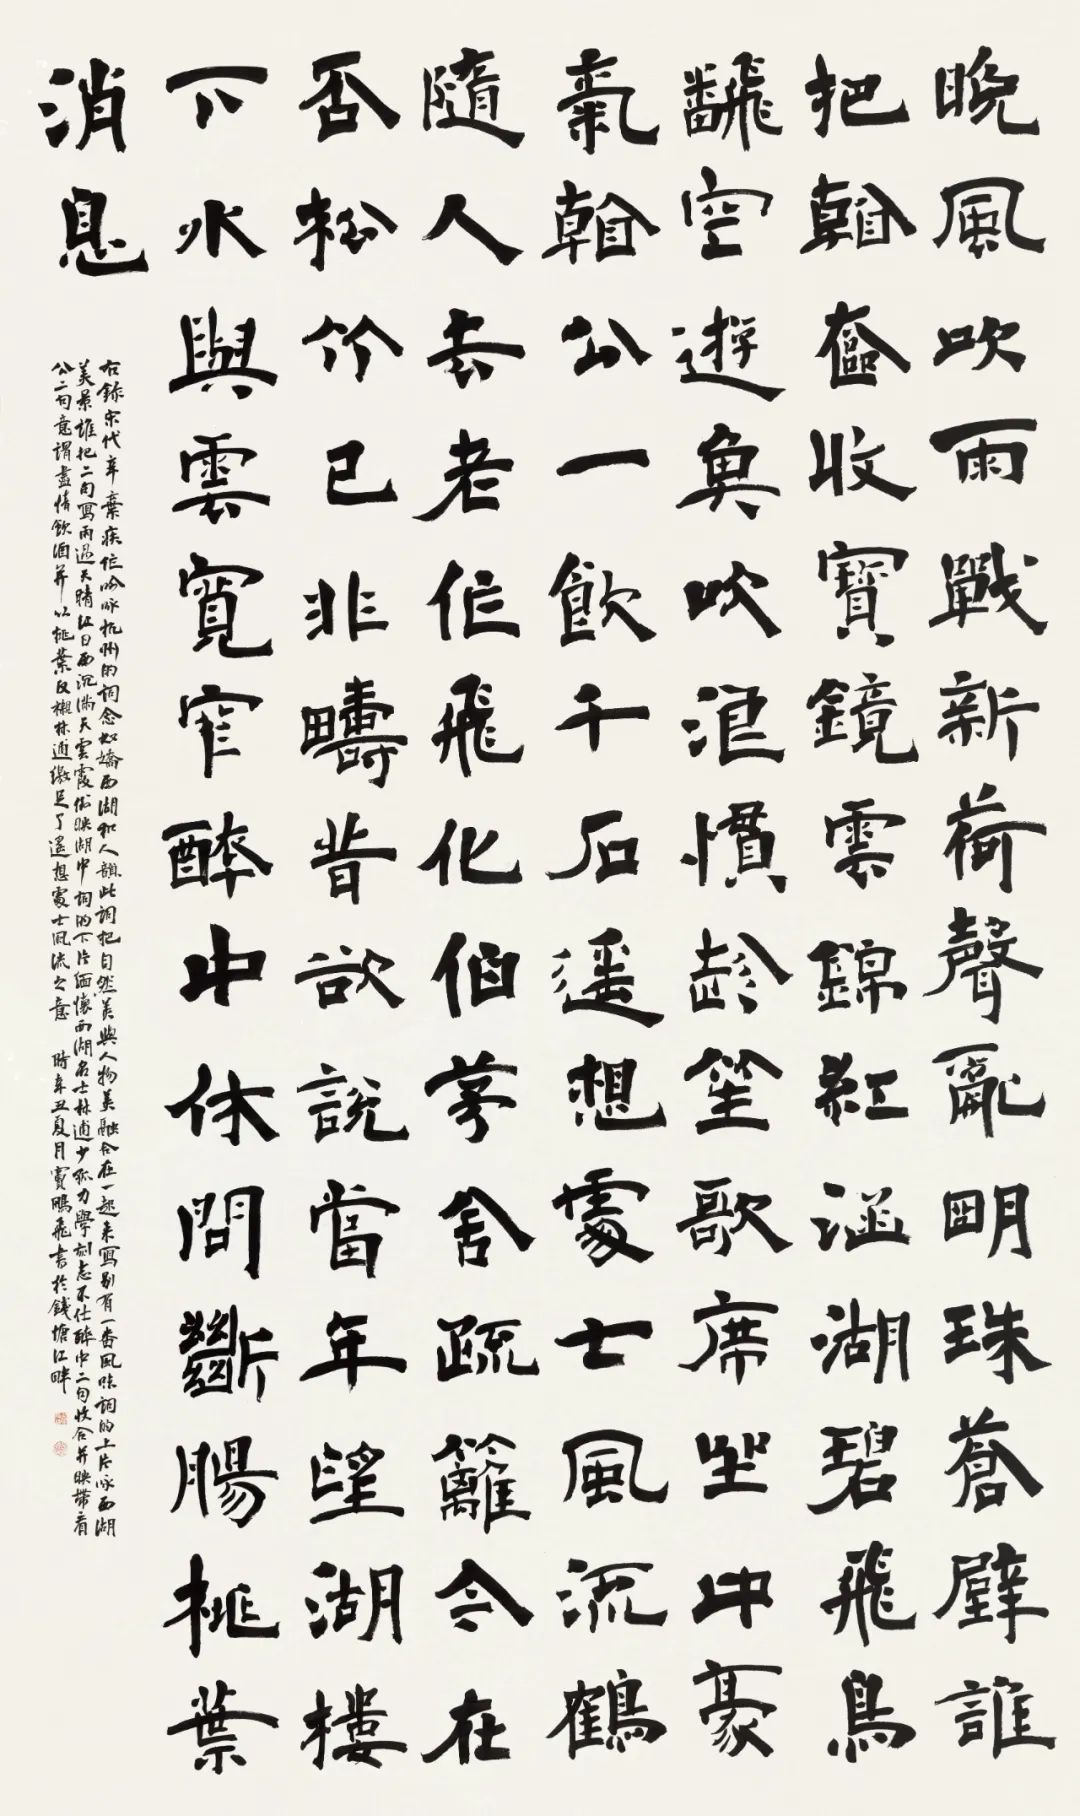 晚風吹雨戰新荷聲亂明珠蒼璧誰
把香奩收寶鏡雲錦紅涵湖碧飛鳥
飜空遊魚吹浪慣趁笙歌席坐中豪
氣看公一飲千石遙想處士風流鶴
隨人去老作飛化伯茅舍疏籬今在
否松竹已非疇昔欲說當年望湖樓
下水與雲寬窄醉中休問斷腸桃葉
消息
右錄宋代辛棄疾作吟咏杭州的詞念奴嬌西湖和人韻此詞把自然美與人物美融合在一起來寫別有一番風味詞的上片咏西湖
美景誰把二句寫雨過天晴紅日西沉滿天雲霞倒映湖中詞的下片緬懷西湖名士林逋少孤力學刻志不仕醉中二句收合并映帶看
公二句意謂盡情飲酒并以桃葉反襯林逋繳足了遙想處士風流之意 時辛丑夏月竇鵬飛書於錢塘江畔